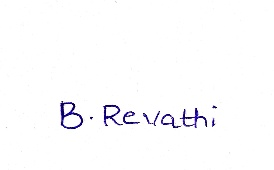 B. Revathi